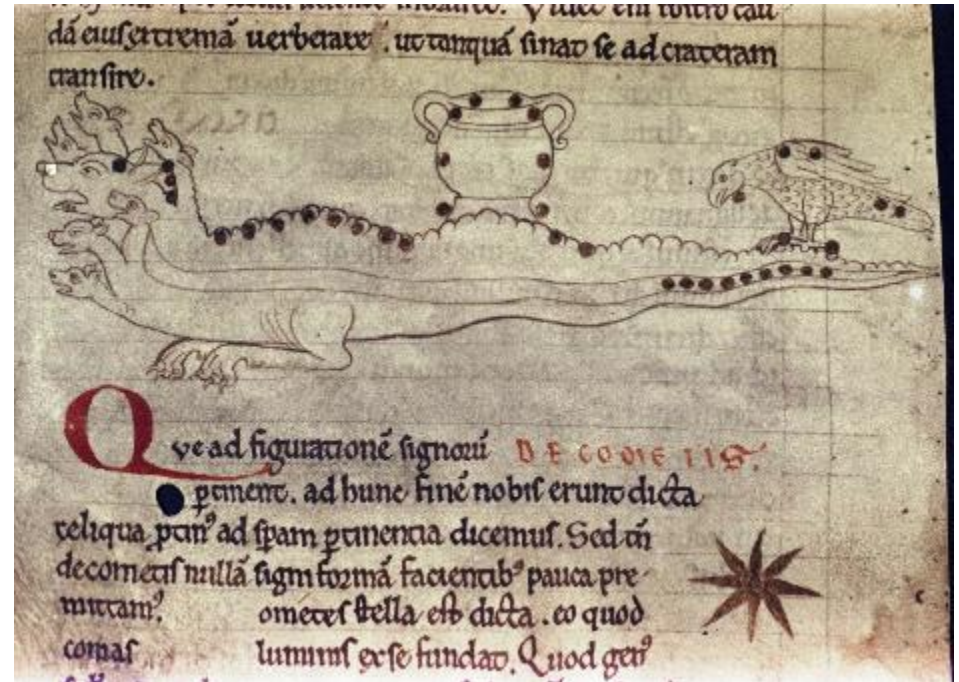 dā eius extremā uerberare. ut tanquā sinat se ad crateram
transire.
Que ad figurationē signorū DE COMETIS.
ꝑtinent. ad hunc finē nobis erunt dicta
reliqua ꝑtinꝰ ad spam ꝑtinentia dicemus. Sed tn̄
de cometis nullā signi formā facientibꝰ pauca pre
mittamꝰ. ometes stella est dicta. eo quod
comas luminis ex se fundat. Quod genꝰ